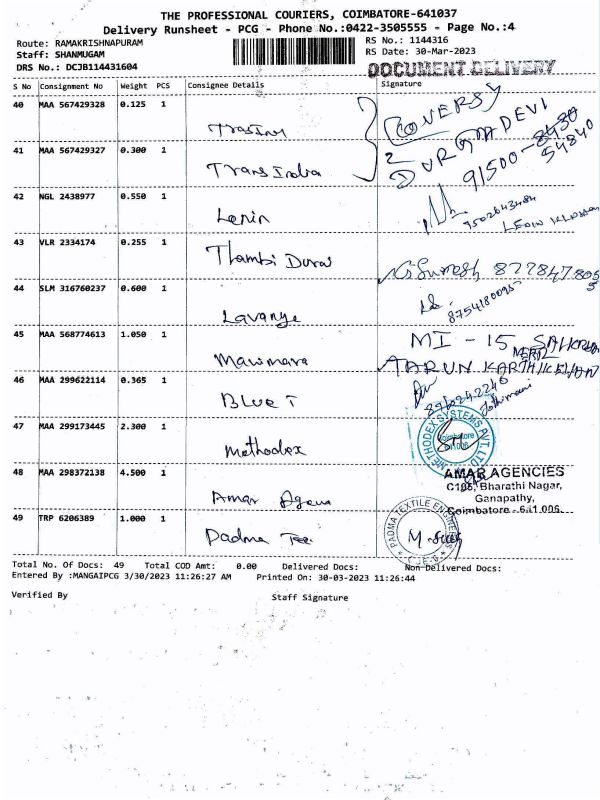 THE PROFESSIONAL COURIERS, COIMBATORE-641037
Delivery Runsheet - PCG - Phone No.:0422-3505555 - Page No.:4
Route: RAMAKRISHNAPURAM
RS No.: 1144316
Staff: SHANMUGAM
RS Date: 30-Mar-2023
DRS No.: DCJB114431604
DOCUMENT DELIVERY
S No Consignment No Weight PCS Consignee Details Signature
40 MAA 567429328 0.125 1
COVERSY
2
DURGADEVI
91500-8430
54840
41 MAA 567429327 0.300 1
Trans India
42 NGL 2438977 0.550 1
Lenin
9502643484
43 VLR 2334174 0.255 1
Thambi Durai
G Suresh 8778478055
44 SLM 316760237 0.600 1
Lavanye
8754180095
45 MAA 568774613 1.050 1
Marimara
MI - 15
TARUN KARTHIKEYAN
46 MAA 299622114 0.365 1
BLUE T
Jothimani
47 MAA 299173445 2.300 1
Methodex
METHODEX SYSTEMS PVT. LTD
Coimbatore
48 MAA 298372138 4.500 1
Amar Agenc
AMAR AGENCIES
C105, Bharathi Nagar,
Ganapathy,
Coimbatore - 641 006.
49 TRP 6206389 1.000 1
Padma Tex
PADMA TEXTILE ENGINEERS
CBE-6
Total No. Of Docs: 49 Total COD Amt: 0.00 Delivered Docs: Non-Delivered Docs:
Entered By :MANGAIPCG 3/30/2023 11:26:27 AM Printed On: 30-03-2023 11:26:44
Verified By Staff Signature